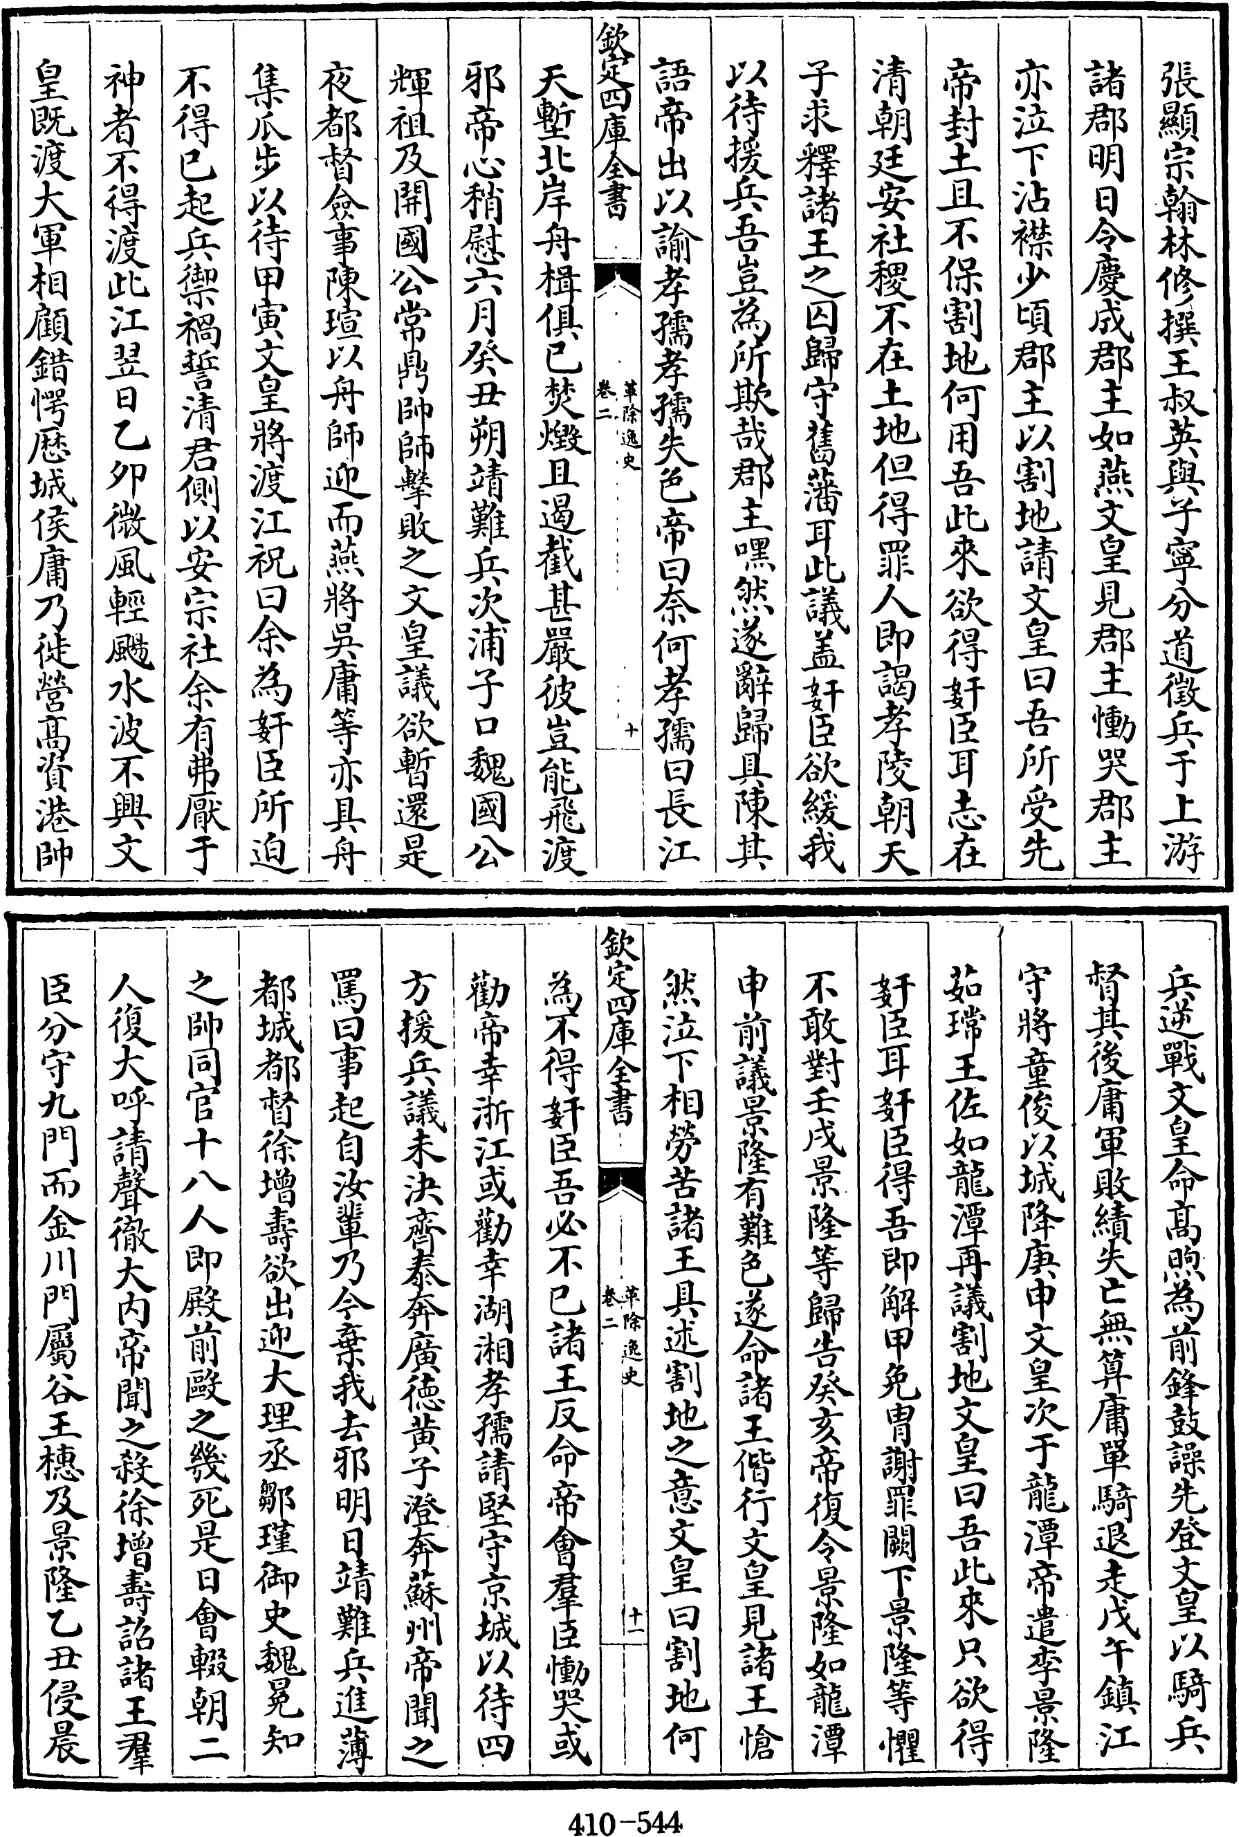 張顯宗翰林修撰王叔英與子寧分道徵兵于上游
諸郡明日令慶成郡主如燕文皇見郡主慟哭郡主
亦泣下沾襟少頃郡主以割地請文皇曰吾所受先
帝封土且不保割地何用吾此來欲得奸臣耳志在
清朝廷安社稷不在土地但得罪人即謁孝陵朝天
子求釋諸王之囚歸守舊藩耳此議盖奸臣欲緩我
以待援兵吾豈為所欺哉郡主嘿然遂辭歸具陳其
語帝出以諭孝孺孝孺失色帝曰奈何孝孺曰長江
欽定四庫全書
革除逸史
卷二
十
天塹北岸舟楫俱已焚燬且遏截甚嚴彼豈能飛渡
邪帝心稍慰六月癸丑朔靖難兵次浦子口魏國公
輝祖及開國公常鼎帥師擊敗之文皇議欲暫還是
夜都督僉事陳瑄以舟師迎而燕將吳庸等亦具舟
集瓜步以待甲寅文皇將渡江祝曰余為奸臣所迫
不得已起兵禦禍誓清君側以安宗社余有弗厭于
神者不得渡此江翌日乙夘微風輕颺水波不興文
皇既渡大軍相顧錯愕厯城侯庸乃徙營髙資港帥
兵逆戰文皇命髙煦為前鋒鼓譟先登文皇以騎兵
督其後庸軍敗績失亡無算庸單騎退走戊午鎮江
守將童俊以城降庚申文皇次于龍潭帝遣李景隆
茹瑺王佐如龍潭再議割地文皇曰吾此來只欲得
奸臣耳奸臣得吾即解甲免胄謝罪闕下景隆等懼
不敢對壬戌景隆等歸告癸亥帝復令景隆如龍潭
申前議景隆有難色遂命諸王偕行文皇見諸王愴
然泣下相勞苦諸王具述割地之意文皇曰割地何
欽定四庫全書
革除逸史
卷二
十一
為不得奸臣吾必不已諸王反命帝會羣臣慟哭或
勸帝幸浙江或勸幸湖湘孝孺請堅守京城以待四
方援兵議未決齊泰奔廣徳黄子澄奔蘇州帝聞之
罵曰事起自汝輩乃今棄我去邪明日靖難兵進薄
都城都督徐增壽欲出迎大理丞鄒瑾御史魏冕知
之帥同官十八人即殿前毆之幾死是日會輟朝二
人復大呼請聲徹大内帝聞之殺徐增壽詔諸王羣
臣分守九門而金川門屬谷王橞及景隆乙丑侵晨
410-544